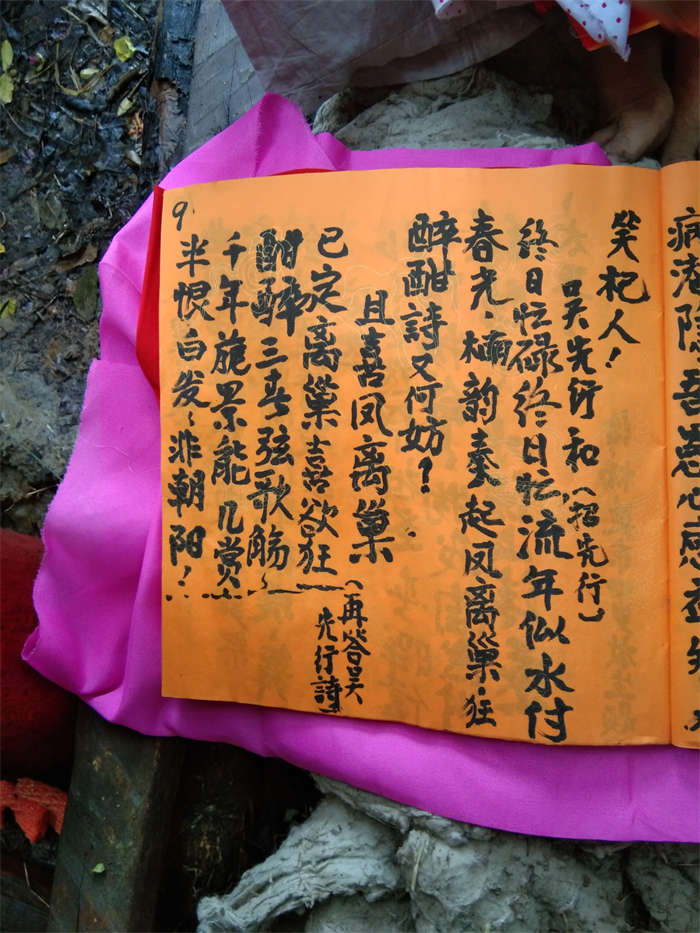 病落隐吾
笑杞人！
吴先行和（招先行）
终日忙碌终日忙，流年似水付
春光。楠韵奏起凤离巢。狂
醉酣詩又何妨？
且喜凤离巢
（再答吴先行詩）
已定离巢喜欲狂
酣醉三春弦歌觞~
千年旎景能几赏
半恨白发、非朝阳！
9